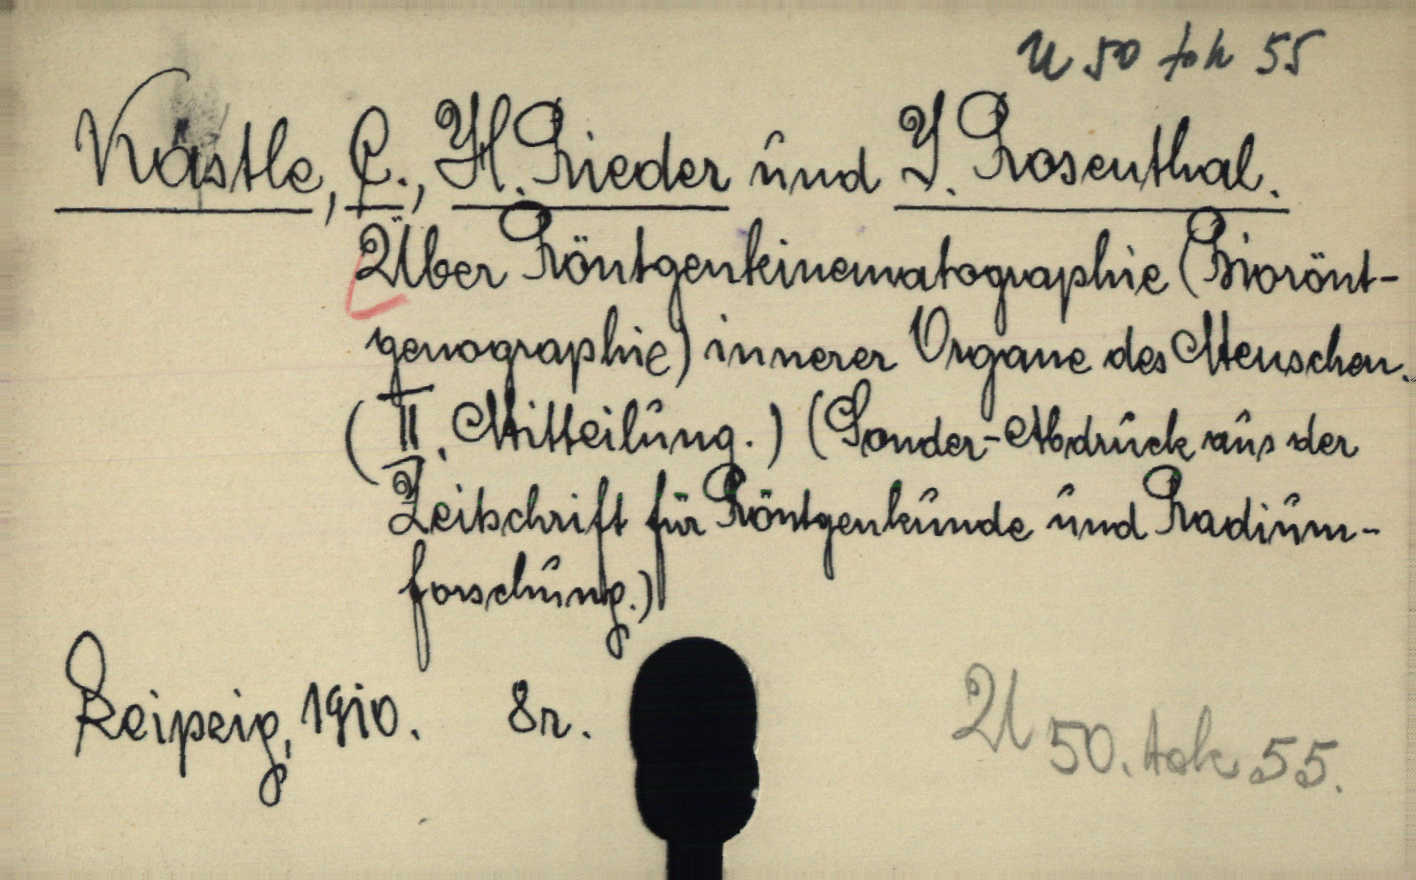 U 50 tok 55
Kästle, C., H. Rieder und J. Rosenthal.
Über Röntgenkinematographie (Biorönt-
genographie) innerer Organe des Menschen.
(II. Mitteilung.) (Sonder-Abdruck aus der
Zeitschrift für Röntgenkunde und Radium-
forschung.)
Leipzig, 1910. 8r.
U 50. tok 55.